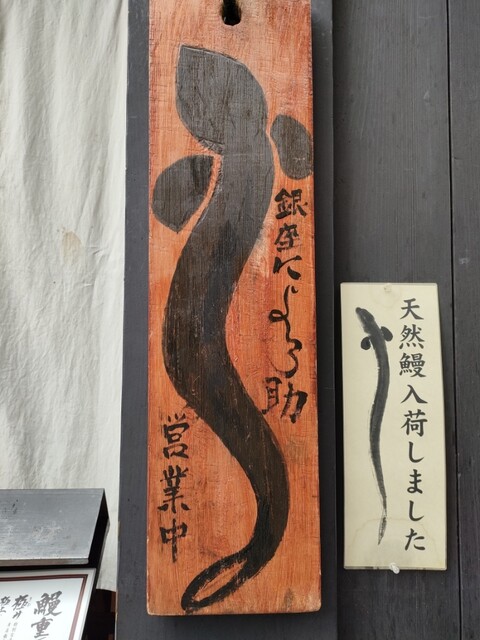 銀座によろ助
営業中
天然鰻入荷しました
鰻重